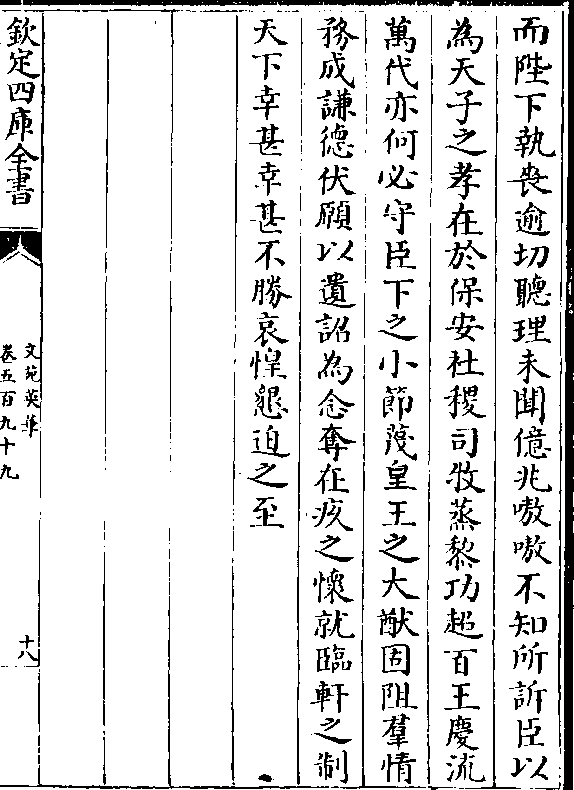 而陛下執喪逾切聽理未聞億兆嗷嗷不知所訴臣以
為天子之孝在於保安社稷司牧蒸黎功超百王慶流
萬代亦何必守臣下之小節蔑皇王之大猷固阻羣情
務成謙德伏願以遺詔為念奪在疚之懷就臨軒之制
天下幸甚幸甚不勝哀惶懇迫之至
欽定四庫全書
文苑英華
卷五百九十九
十八